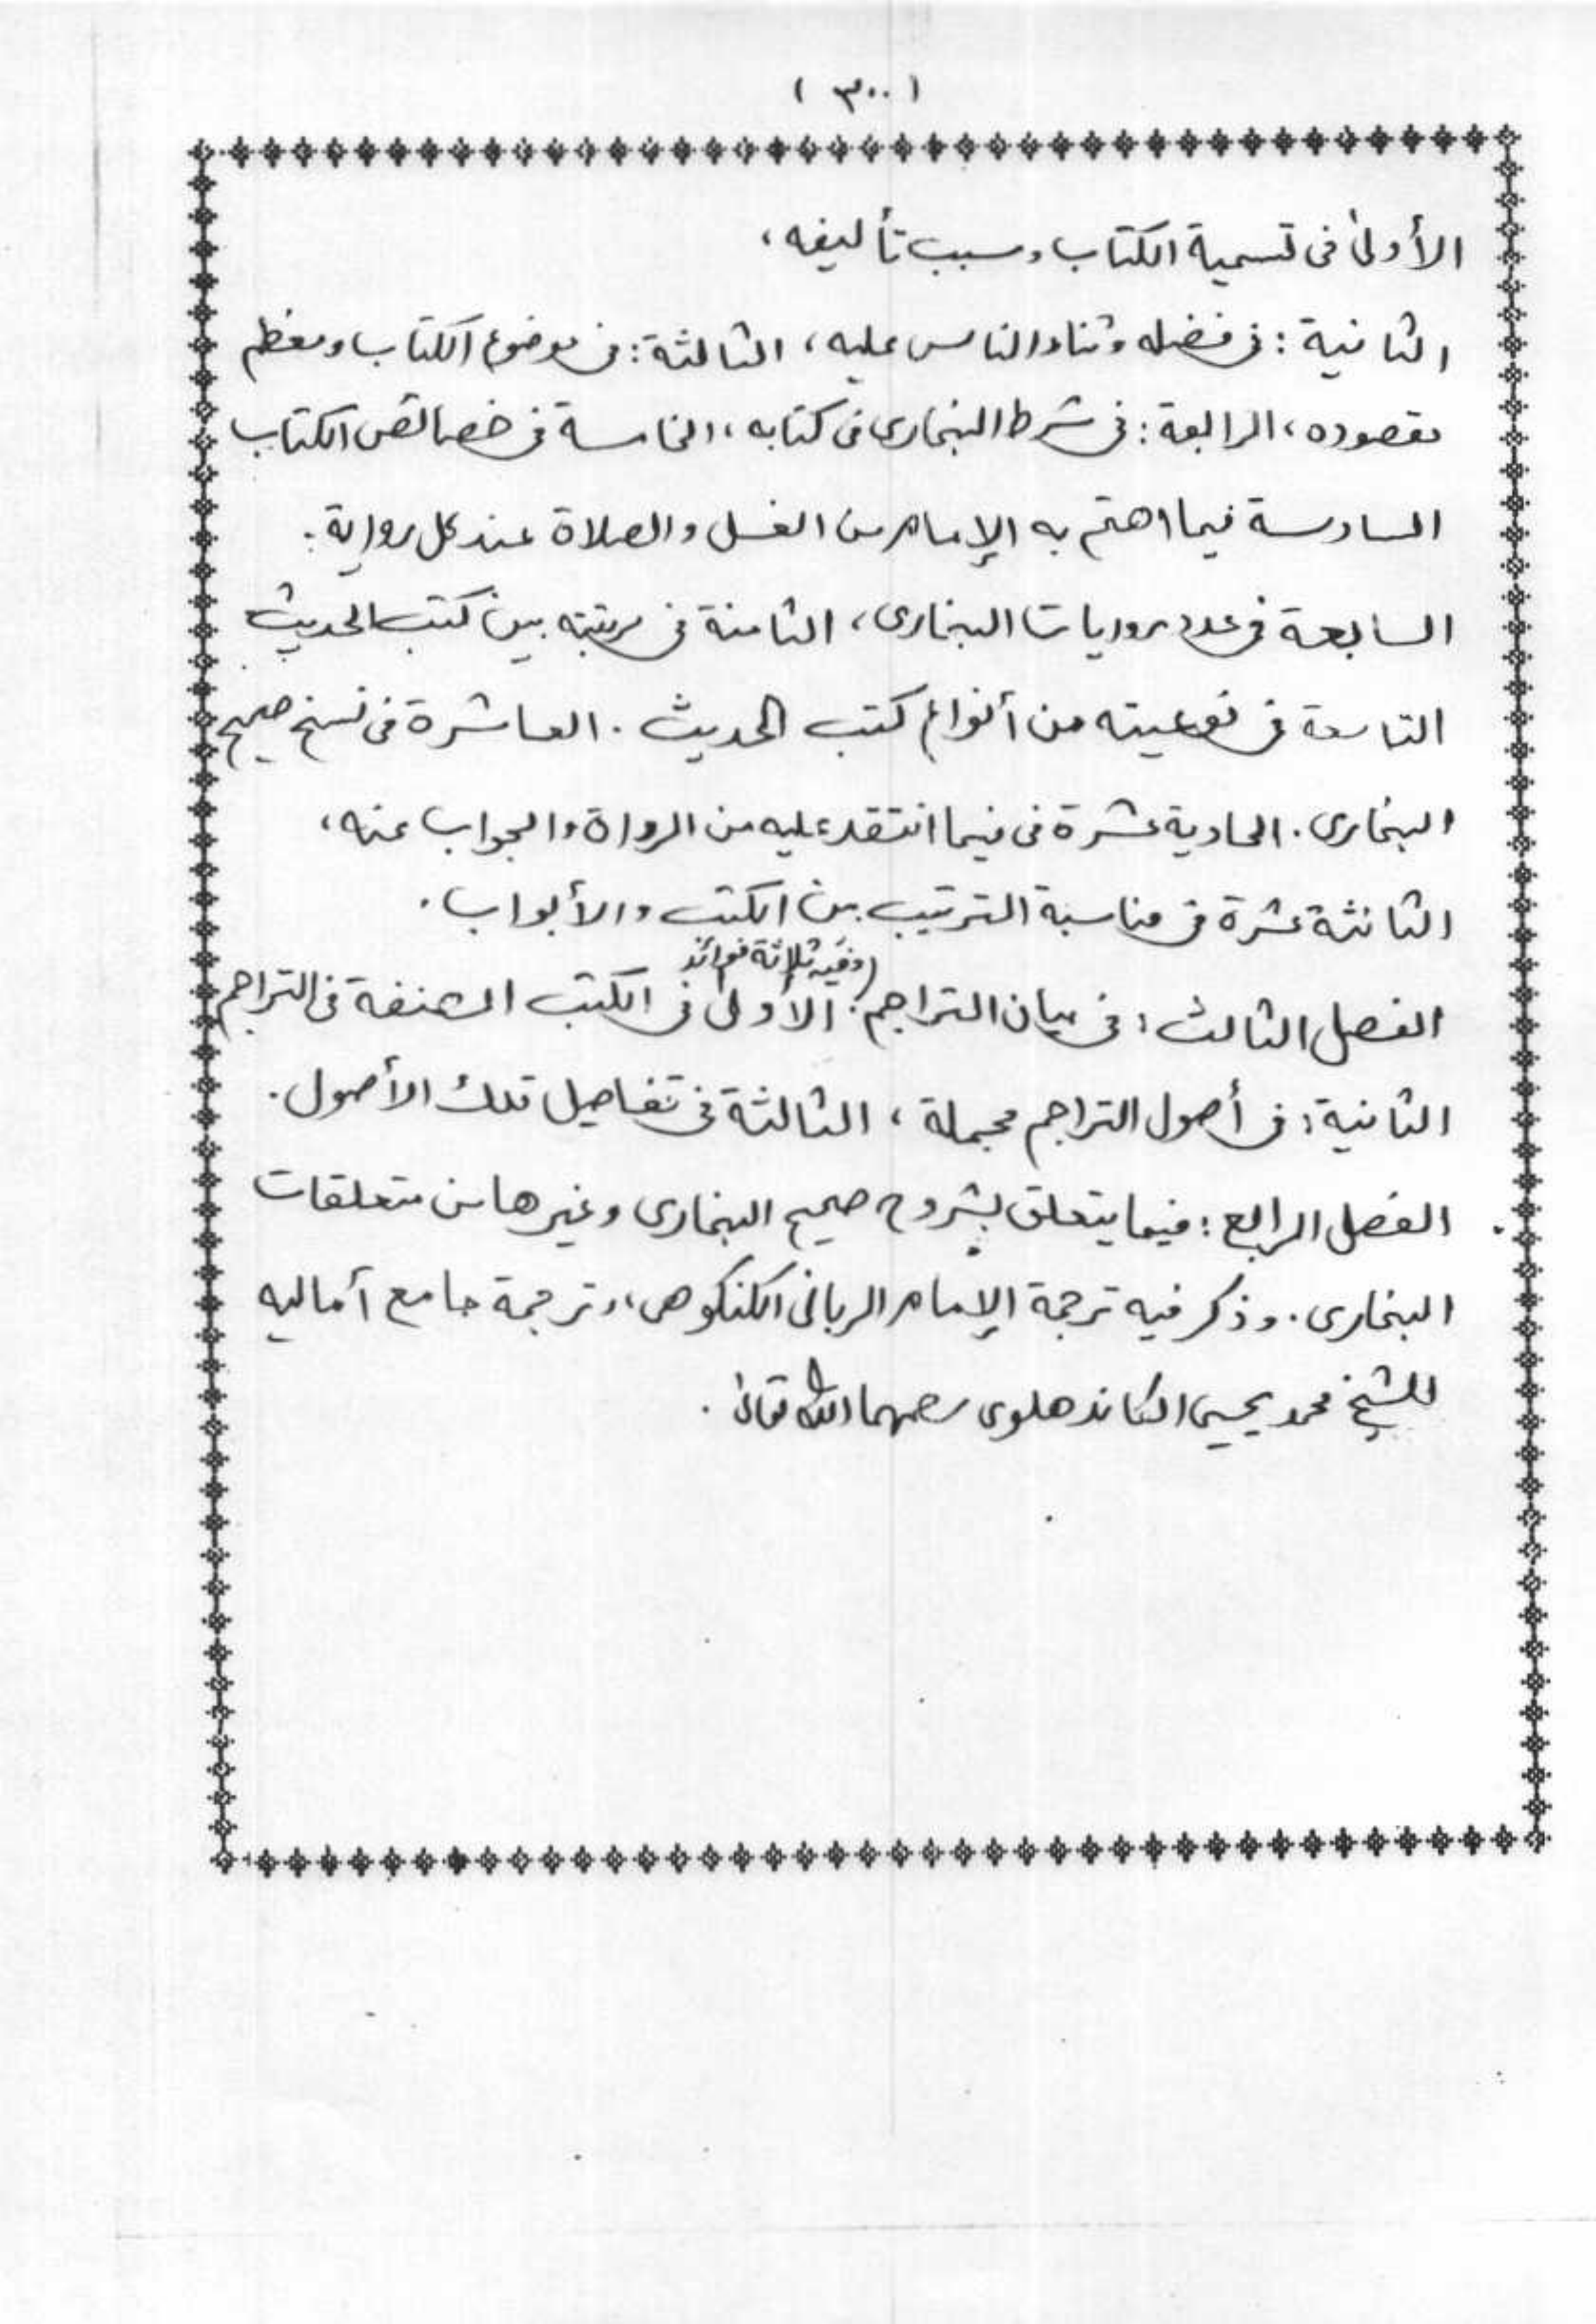 ( ٣٠٠ )
الأولى فى تسمية الكتاب وسبب تأليفه ،
الثانية : فى فضله وثناء الناس عليه ، الثالثة : فى موضوع الكتاب ومعظم
مقصوده ، الرابعة : فى شرط البخارى فى كتابه ، الخامسة فى خصائص الكتاب
السادسة فيما اهتم به الإمام من الغسل والصلاة عند كل رواية .
السابعة فى عدد روايات البخارى ، الثامنة فى مرتبته بين كتب الحديث
التاسعة فى نوعيته من أنواع كتب الحديث . العاشرة فى نسخ صحيح
البخارى . الحادية عشرة فى فيما انتقد عليه من الرواة والجواب عنه ،
الثانثة عشرة فى مناسبة الترتيب بين الكتب والأبواب .
(وفيه ثلاثة فوائد
الفصل الثالث : فى بيان التراجم : الأولى فى الكتب المصنفة فى التراجم
الثانية : فى أصول التراجم مجملة ، الثالثة فى تفاصيل تلك الأصول .
الفصل الرابع : فيما يتعلق بشروح صحيح البخارى وغيرها من متعلقات
البخارى . وذكر فيه ترجمة الإمام الربانى الكنكوهى ، وترجمة جامع آماليه
للشيخ محمد يحيى الكاندهلوى رحمهما الله تعالى .